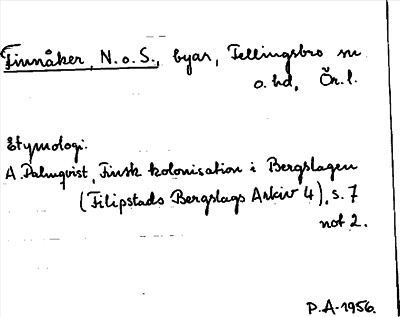 Finnåker, N. o S., byar, Fellingsbro sn
o. hd, Ör. l.
Etymologi.
A. Palmqvist, Finsk kolonisation i Bergslagen
(Filipstads Bergslags Arkiv 4), s. 7
not 2.
P.A-1956.